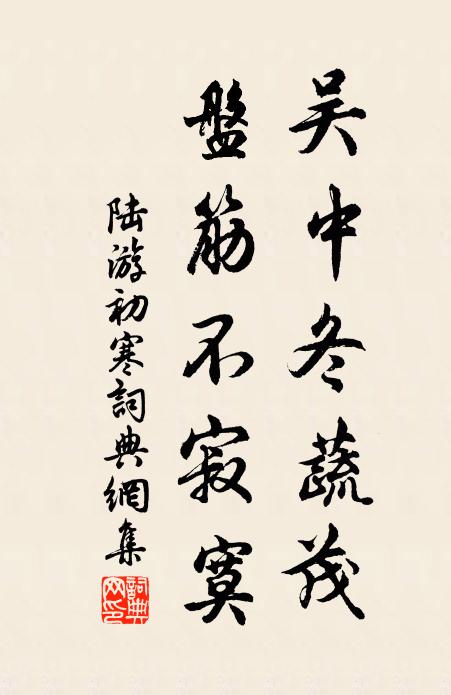 吴中冬蔬茂
盤筋不寂寞
陆游初寒詞典網集
詞典网印